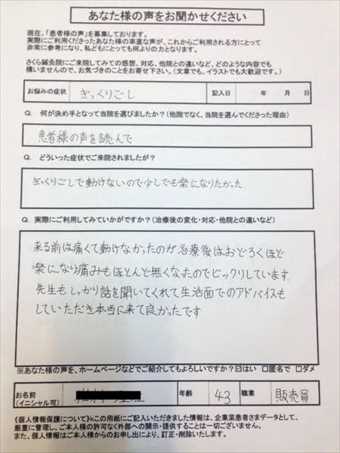 あなた様の声をお聞かせください
現在、「患者様の声」を募集しております。
実際にご利用くださったあなた様の率直な声が、これからご利用される方にとって
非常に参考になり、私どもにとっても何よりの力となります。
さくら鍼灸院にご来院してみての感想、対応、他院との違いなど、どのような内容でも
構いませんので、お気づきのことをお寄せ下さい。(文章でも、イラストでも大歓迎です。)
お悩みの症状 ぎっくりごし 記入日 年 月 日
Q. 何が決め手となって当院を選びましたか?(他院でなく、当院を選んでくださった理由)
患者様の声を読んで
Q. どういった症状でご来院されましたか?
ぎっくりごしで動けないので少しでも楽になりたかった
Q. 実際にご利用してみていかがですか?(治療後の変化・対応・他院との違いなど)
来る前は痛くて動けなかったのが治療後はおどろくほど
楽になり痛みもほとんど無くなったのでビックリしています。
先生もしっかり話を聞いてくれて生活面でのアドバイスも
していただき本当に来て良かったです
※あなた様の声を、ホームページなどでご紹介してもよろしいですか?☑はい □匿名で □ダメ
お名前 年齢 43 職業 販売員
(イニシャル可)
《個人情報保護について》※この用紙にご記入いただきました情報は、企業業患者さまデータとして、
厳重に管理し、ご本人様の同意なく外部への開示・提供することは一切ございません。
また、個人情報はご本人様からのお申し出により、訂正・削除いたします。